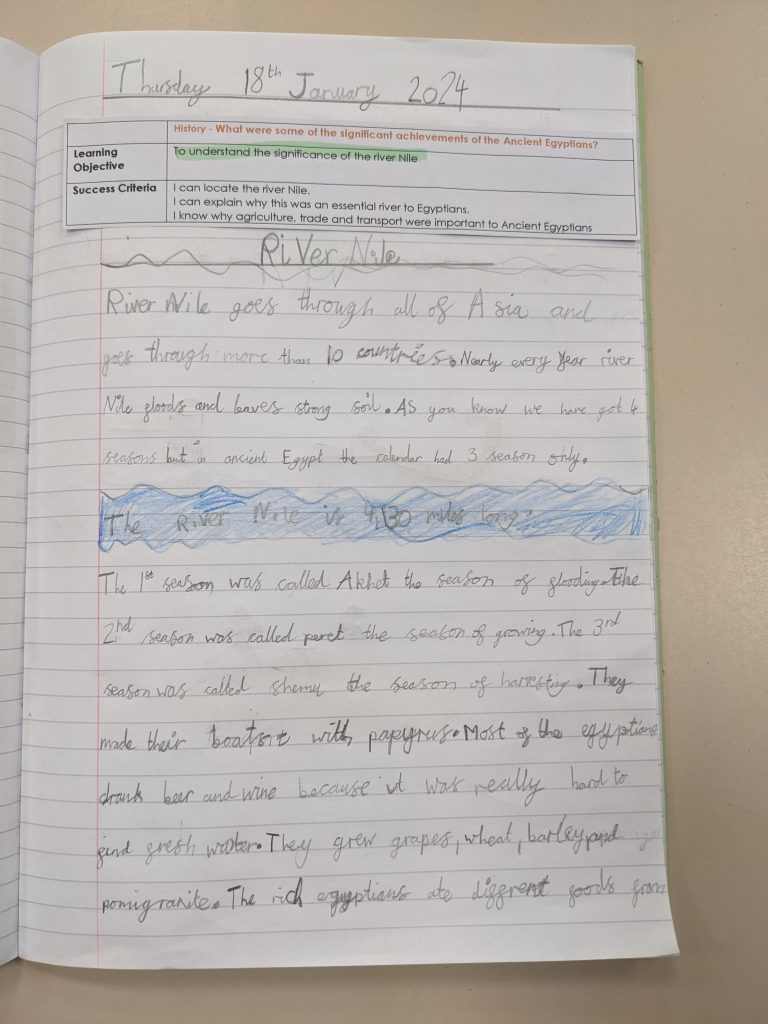 Thursday 18th January 2024
History - What were some of the significant achievements of the Ancient Egyptians?
Learning Objective
To understand the significance of the river Nile
Success Criteria
I can locate the river Nile.
I can explain why this was an essential river to Egyptians.
I know why agriculture, trade and transport were important to Ancient Egyptians
River Nile
River Nile goes through all of Asia and
goes through more than 10 countries. Nearly every year river
Nile floods and leaves strong soil. As you know we have got 4
seasons but in ancient Egypt the calendar had 3 season only.
The River Nile is 4,130 miles long.
The 1st season was called Akhet the season of flooding. The
2nd season was called peret the season of growing. The 3rd
season was called shemu the season of harvesting. They
made their with papyrus. Most of the egyptians
drank beer and wine because it was really hard to
find fresh water. They grew grapes, wheat, barley and
pomigranite. The rich egyptians ate diffrent foods from